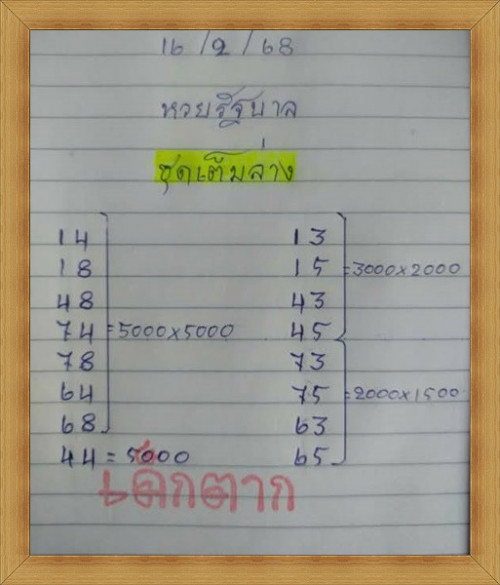 16/2/68
หวยรัฐบาล
ชุดเต็มล่าง
14
18
48
74 = 5000x5000
78
64
68
44 = 5000
13
15 = 3000x2000
43
45
73
75 = 2000x1500
63
65
เด็กตาก